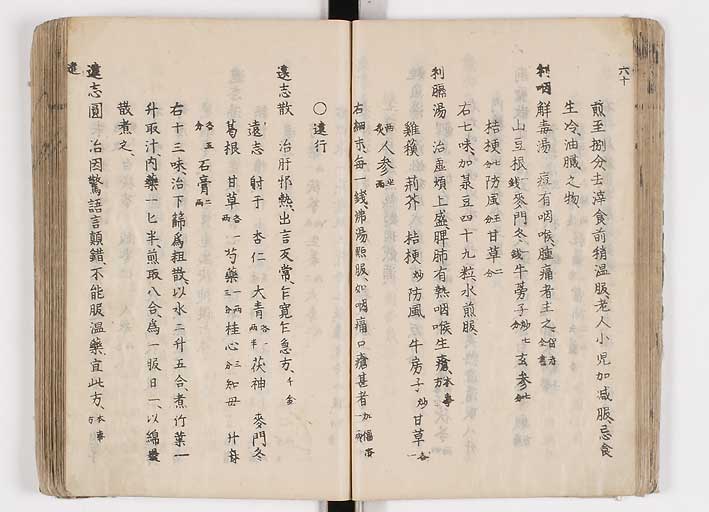 六十
煎至捌分去滓食前稍温服老人小児加减服忌食
生冷油膩之物
利咽觧毒湯 痘有咽喉腫痛者主之
山豆根 麥門冬 牛蒡子 玄参
桔梗 防風 甘草
右七味加菉豆四十九粒水煎服
利膈湯 治虚煩上盛脾肺有熱咽喉生瘡方本事
雞蘓 荊芥 桔梗炒 防風 牛房子炒 甘草
人参
右細末毎一銭沸湯服如咽痛口瘡甚者加
〇遠行
遠志散 治肝邪熱出言反常乍寛乍急方千金
遠志 射干 杏仁 大青 茯神 麥門冬
葛根 甘草 芍藥 桂心 知母 升麻
石膏
右十三味治下篩為粗散以水二升五合煮竹葉一
升取汁内藥一匕半煎取八合為一服日一以綿
散煮之
遠志圓 治因驚語言顛錯不能服温藥宜此方本事
遠